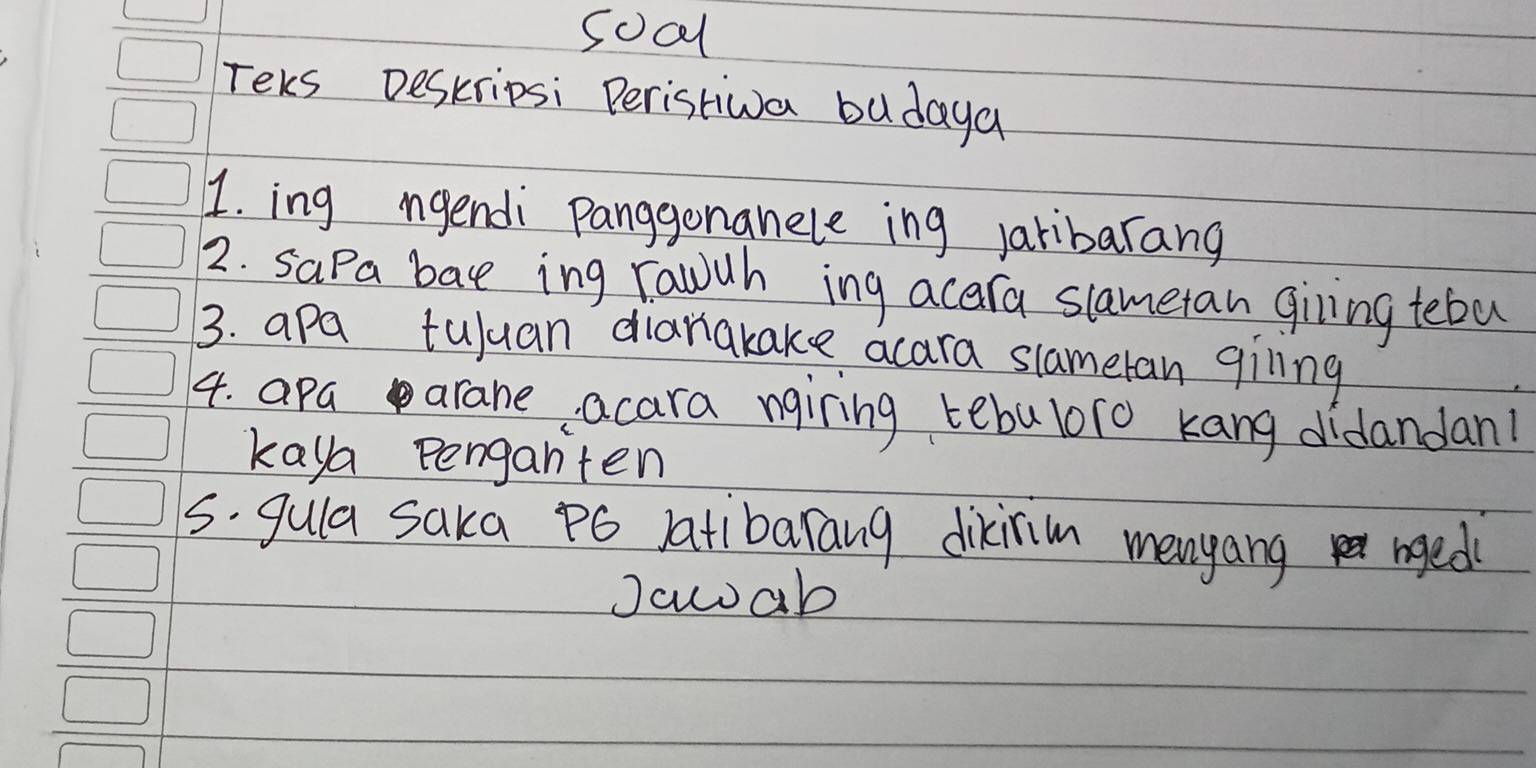 Soal
Teks Deskripsi Peristiwa budaya
1. ing ngendi Panggonanele ing jatibarang
2. sapa bae ing rawuh ing acara slametan giling tebu
3. apa tujuan dianakake acara slametan giling
4. apa arane acara ngiring tebu loro kang didandani
kaya Penganten
5. gula saka PG Jatibarang dikirim menyang ngedi
Jawab